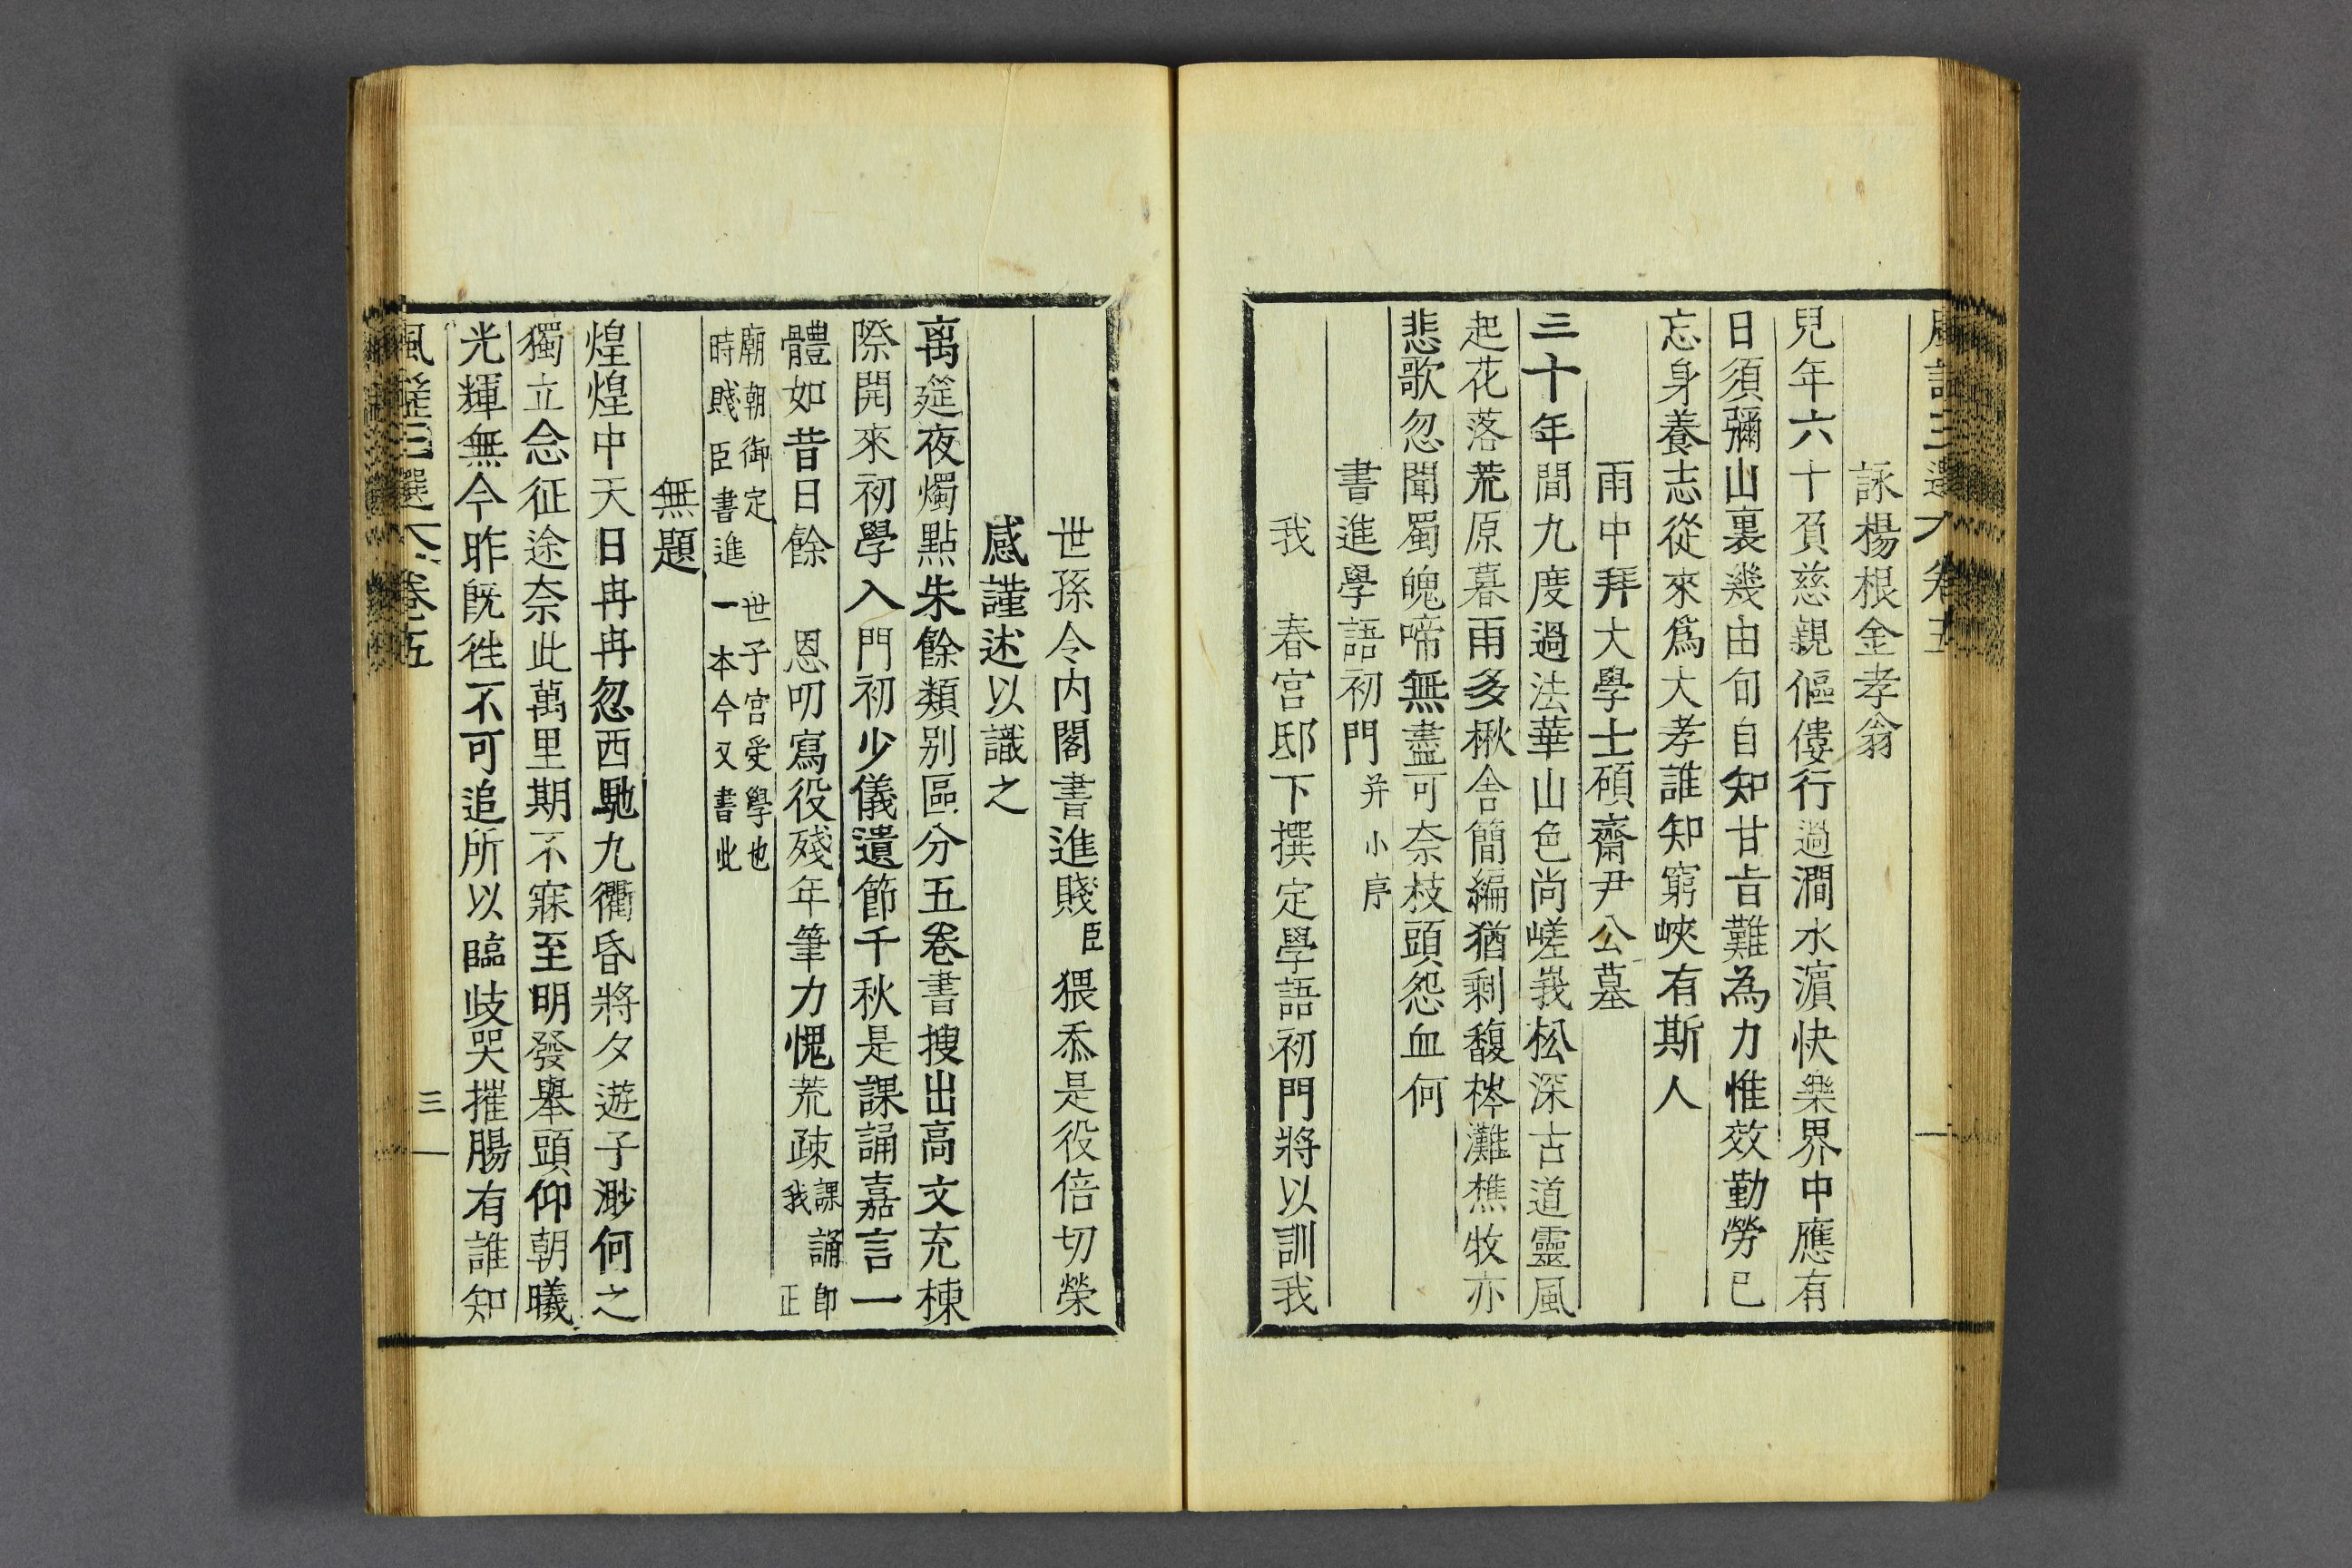 詠楊根金孝翁
兒年六十負慈親傴僂行過澗水濵快樂界中應有
日須彌山裏幾由旬自知甘旨難為力惟效勤勞已
忘身養志從來爲大孝誰知窮峽有斯人
雨中拜大學士碩齋尹公墓
三十年間九度過法華山色尚嵯峩松深古道靈風
起花落荒原暮雨多楸舍簡編猶剩馥梣灘樵牧亦
悲歌忽聞蜀魄啼無盡可奈枝頭怨血何
書進學語初門并小序
我　春宮邸下撰定學語初門將以訓我
世孫令內閣書進賤臣猥忝是役倍切榮
感謹述以識之
离筵夜燭點朱餘類別區分五卷書搜出高文充棟
際開來初學入門初少儀遺節千秋是課誦嘉言一
體如昔日餘　恩叨寫役殘年筆力愧荒疎課誦卽我正
廟朝御定　世子宮受學也
時賤臣書進一本今又書此
無題
煌煌中天日冉冉忽西馳九衢昏將夕遊子渺何之
獨立念征途奈此萬里期不寐至明發舉頭仰朝曦
光輝無今昨旣徃不可追所以臨歧哭摧腸有誰知
卷五
三